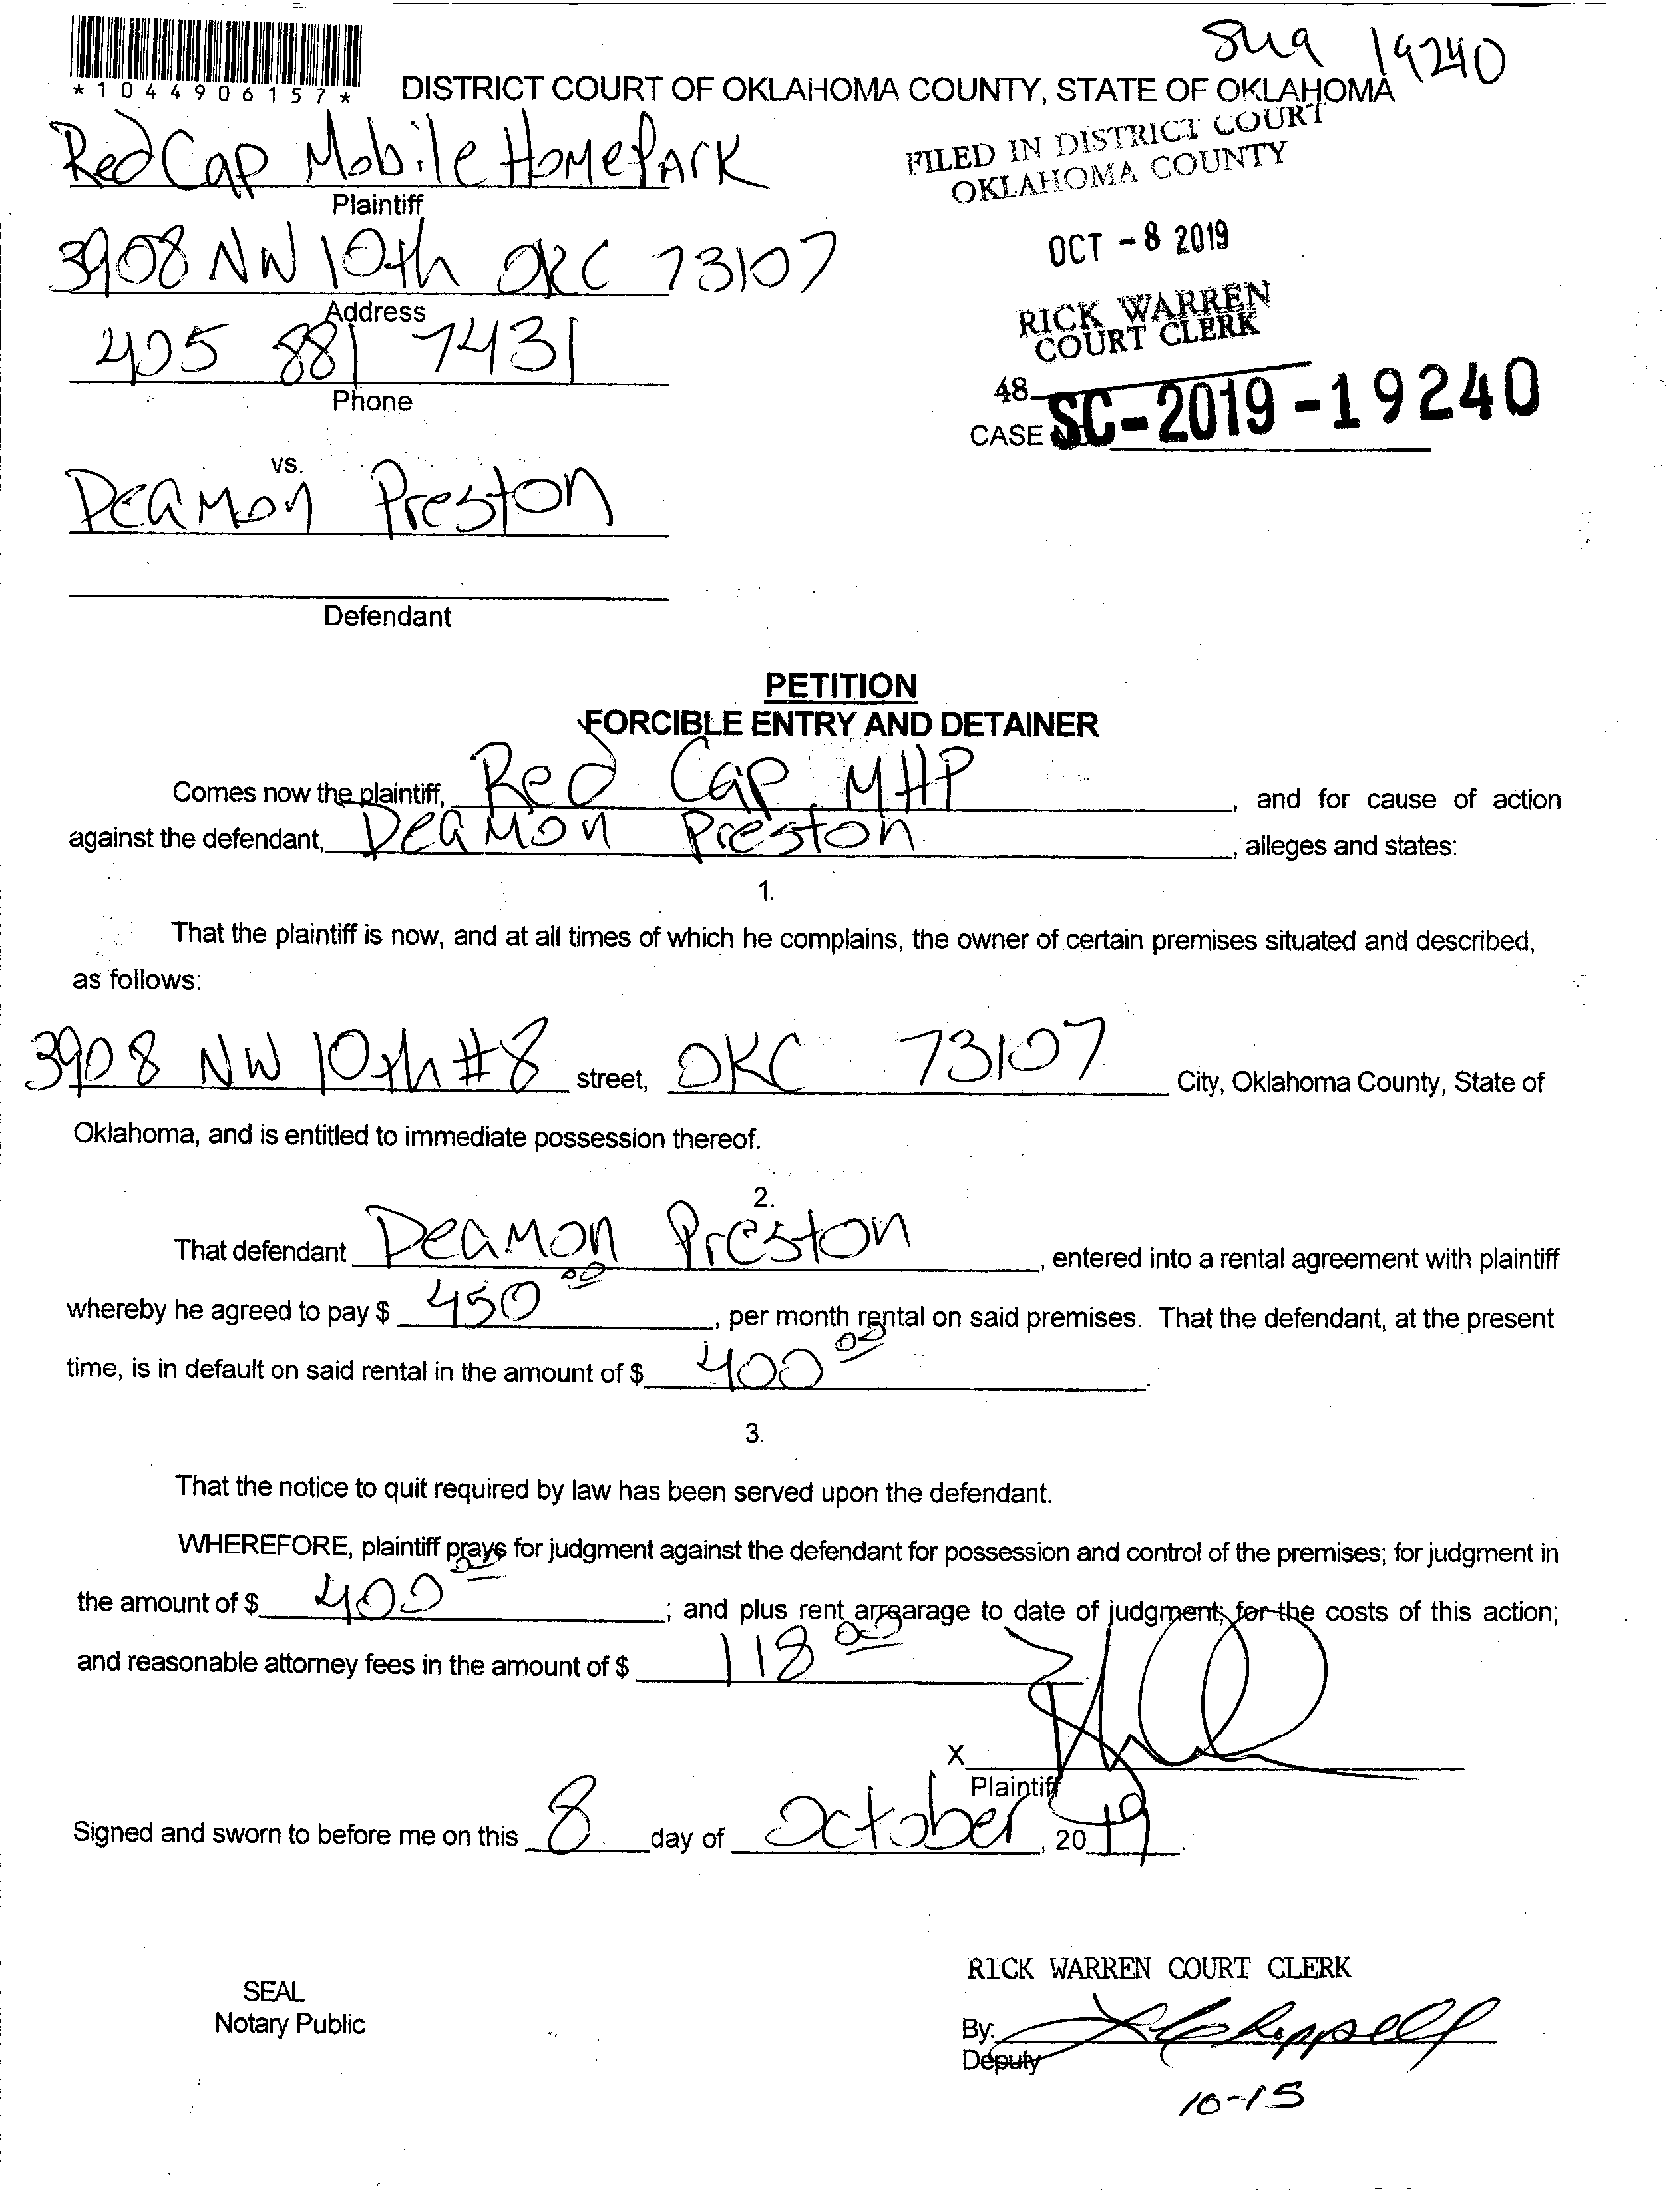 19240
*1044906157*
DISTRICT COURT OF OKLAHOMA COUNTY, STATE OF OKLAHOMA
Red Cap Mobile Home Park
Plaintiff
FILED IN DISTRICT COURT
OKLAHOMA COUNTY
3908 NW 10th OKC 73107
Address
OCT - 8 2019
405 881 7431
Phone
RICK WARREN
COURT CLERK
48
CASE SC-2019-19240
vs.
Deamon Preston
Defendant
PETITION
FORCIBLE ENTRY AND DETAINER
Comes now the plaintiff, Red Cap MHP, and for cause of action
against the defendant, Deamon Preston, alleges and states:
1.
That the plaintiff is now, and at all times of which he complains, the owner of certain premises situated and described,
as follows:
3908 NW 10th #8 street, OKC 73107 City, Oklahoma County, State of
Oklahoma, and is entitled to immediate possession thereof.
2.
That defendant Deamon Preston, entered into a rental agreement with plaintiff
whereby he agreed to pay $ 450 00, per month rental on said premises. That the defendant, at the present
time, is in default on said rental in the amount of $ 400 00.
3.
That the notice to quit required by law has been served upon the defendant.
WHEREFORE, plaintiff prays for judgment against the defendant for possession and control of the premises; for judgment in
the amount of $ 400 00; and plus rent arrearage to date of judgment; for the costs of this action;
and reasonable attorney fees in the amount of $ 118 00
X
Plaintiff
Signed and sworn to before me on this 8 day of October, 2019.
RICK WARREN COURT CLERK
SEAL
Notary Public
By:
Deputy
10-15